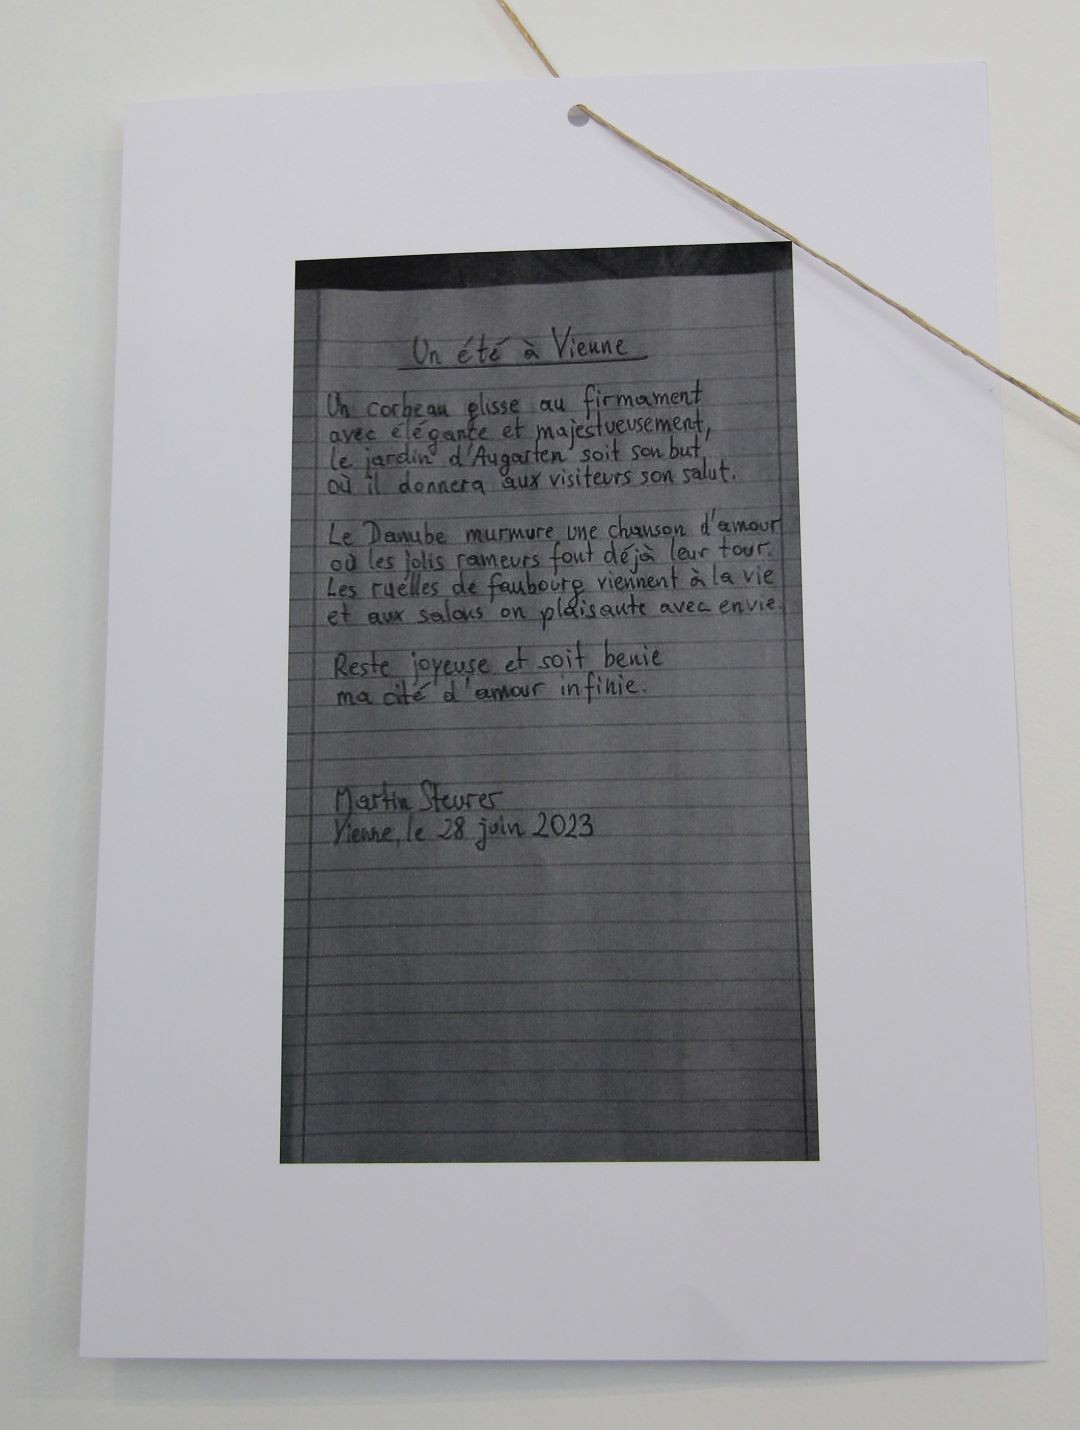 Un été à Vienne
Un corbeau glisse au firmament
avec élégance et majestueusement,
le jardin d'Augarten soit son but,
où il donnera aux visiteurs son salut.
Le Danube murmure une chanson d'amour
où les jolis rameurs font déjà leur tour.
Les ruelles de faubourg viennent à la vie
et aux salons on plaisante avec envie.
Reste joyeuse et soit benie
ma cité d'amour infinie.
Martin Steurer
Vienne, le 28 juin 2023